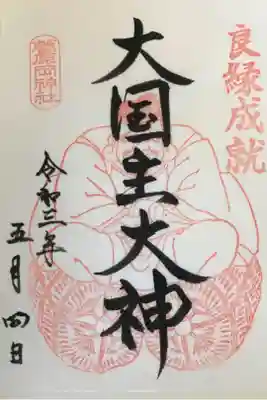 良縁成就
大国主大神
岡神社
令和三年
五月四日